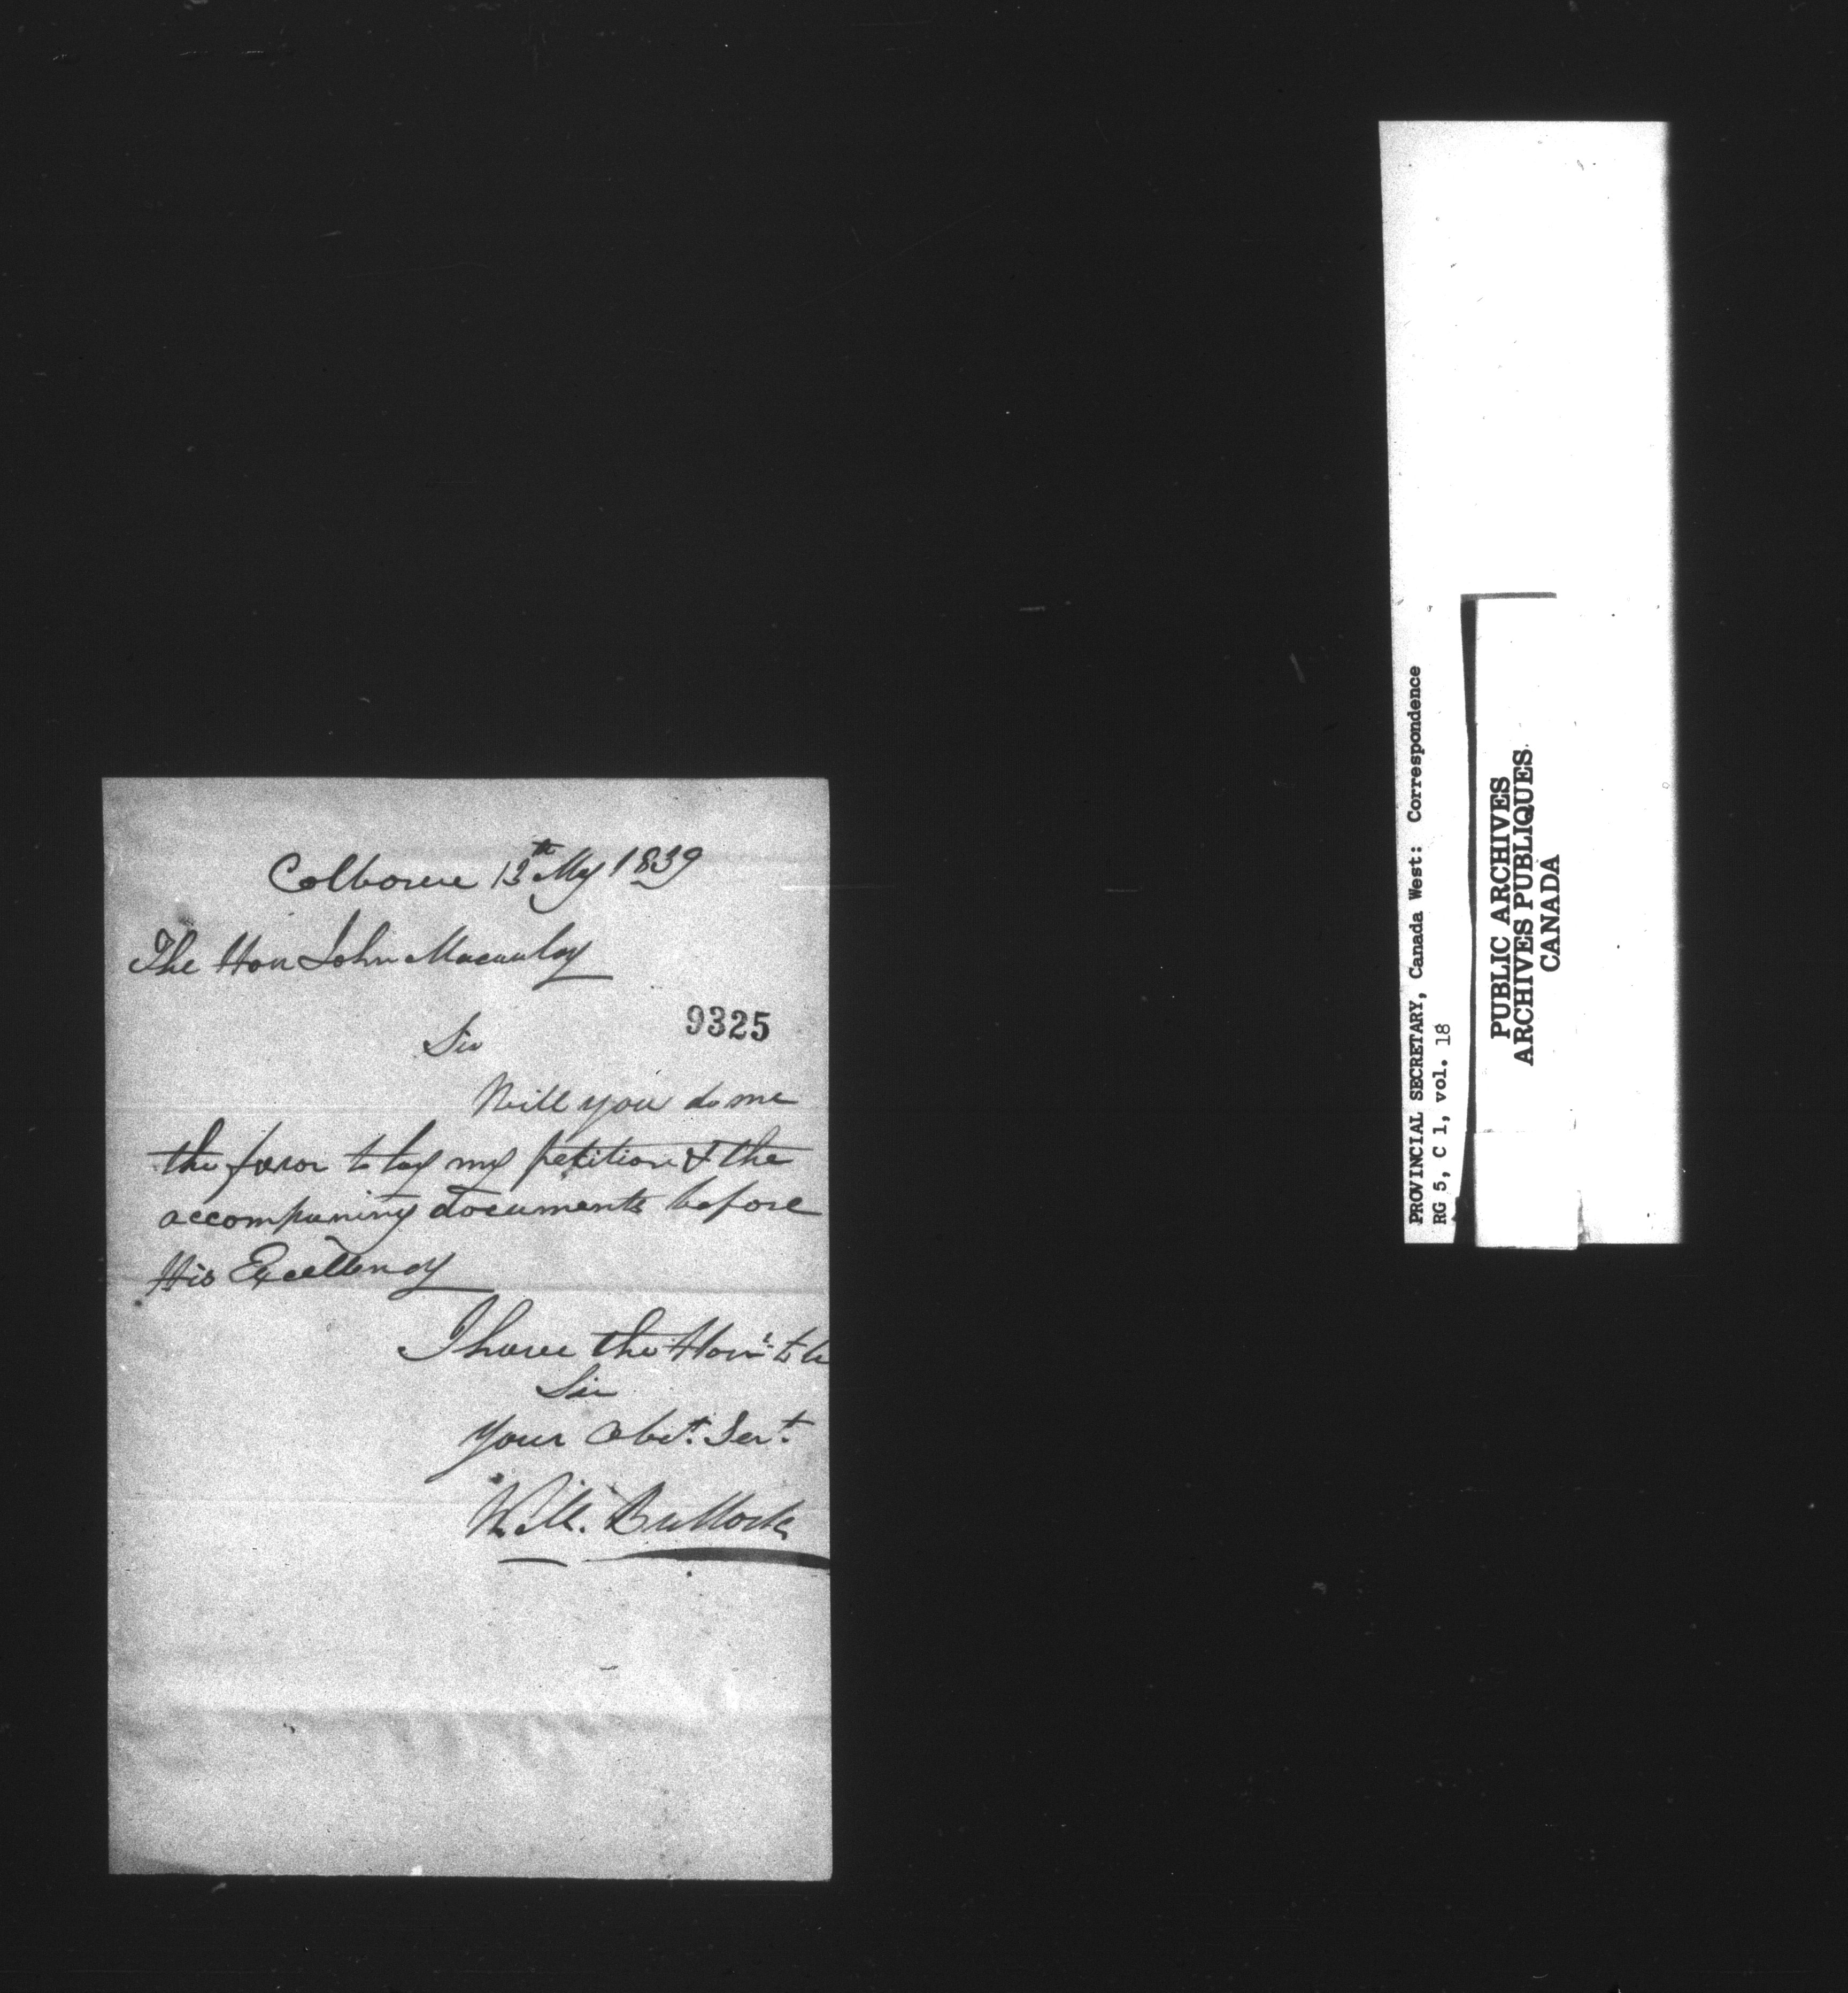 Colborne 13th May 1839
The Hon John Macaulay
9325
Sir
Will you do me
the favor to lay my petition & the
accompaning documents before
His Excellency
I have the Honr to be
Sir
Your Obt. Sert.
Will. Bullock
PROVINCIAL SECRETARY, Canada West: Correspondence
RG 5, C 1, vol. 18
PUBLIC ARCHIVES
ARCHIVES PUBLIQUES
CANADA